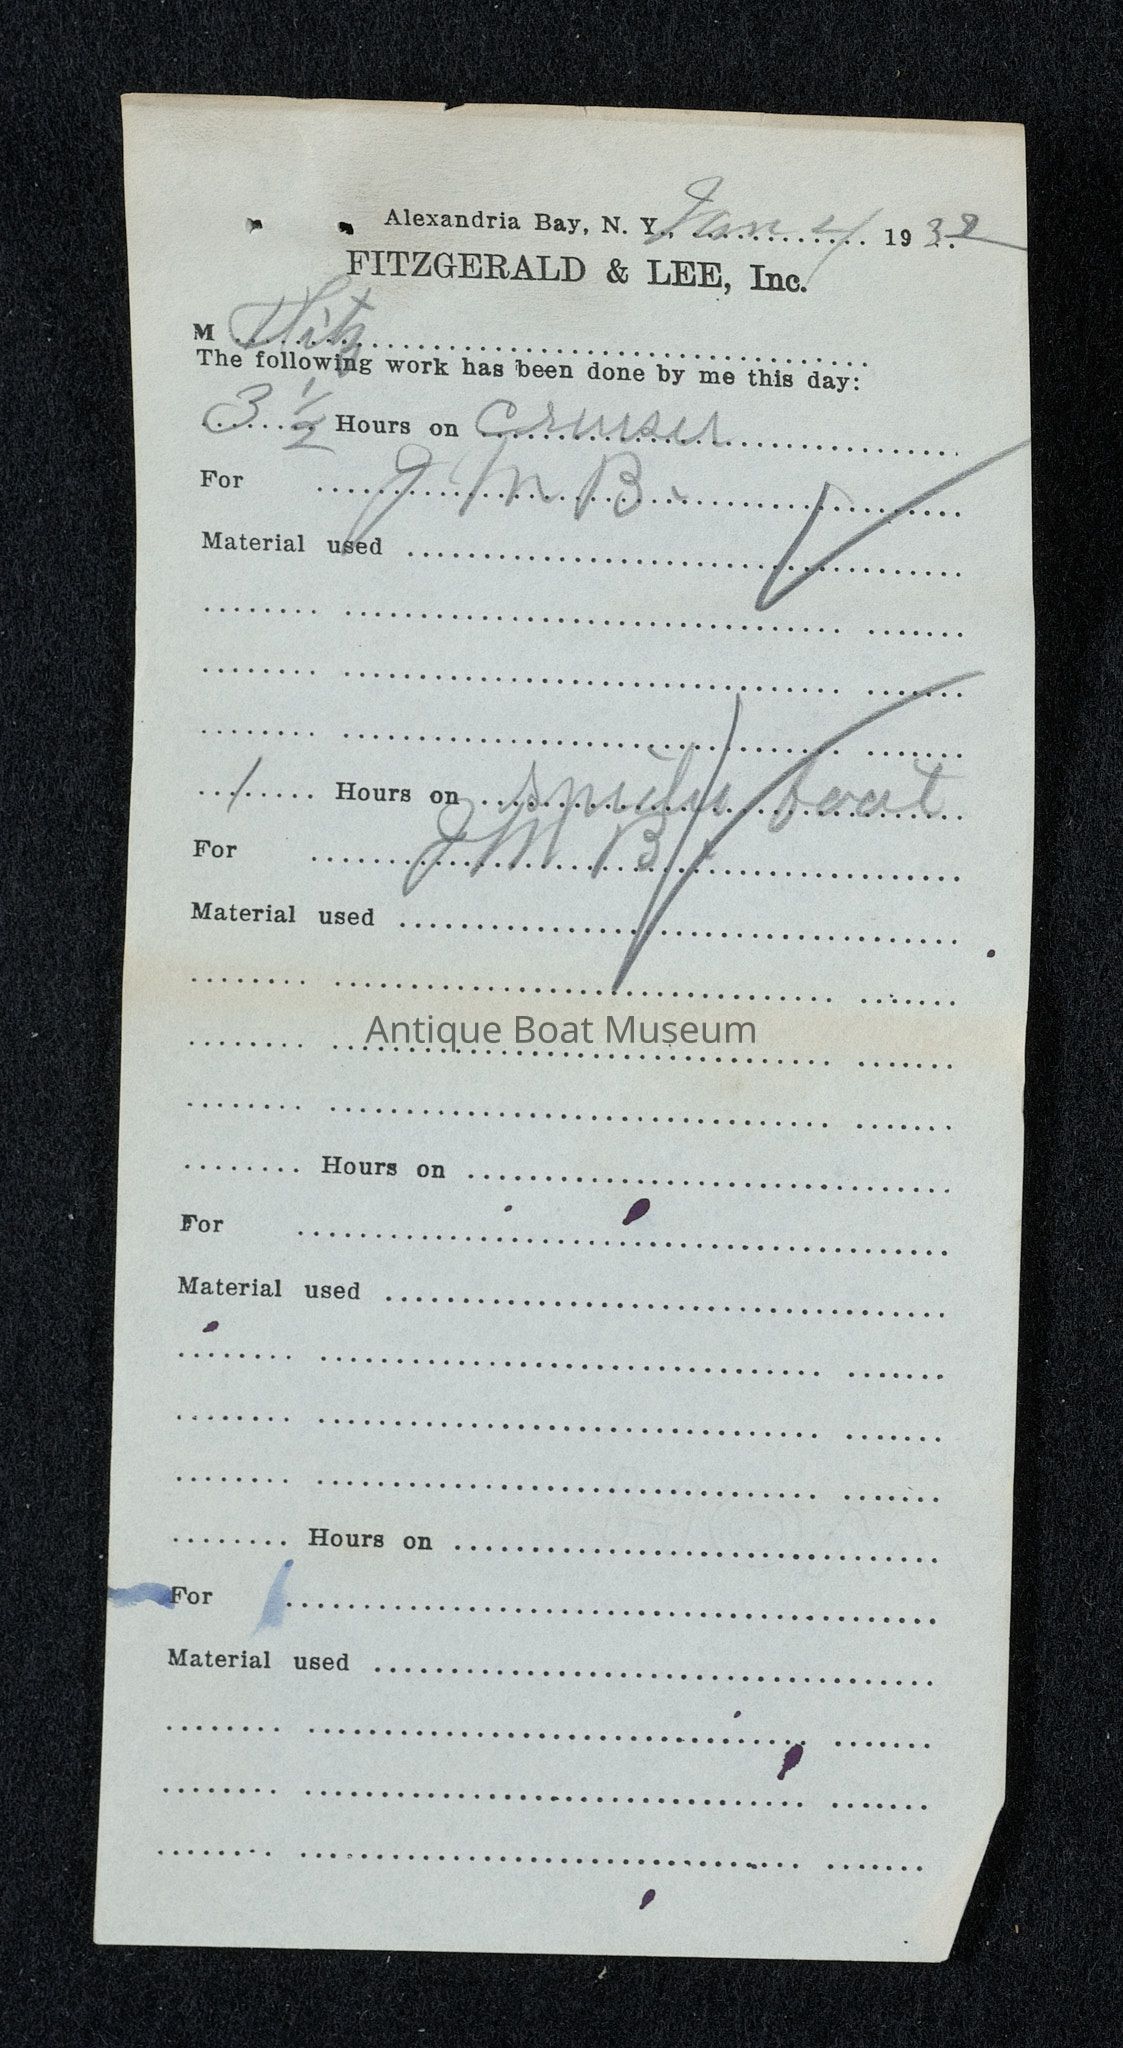 Alexandria Bay, N. Y., Jan 4 1932
FITZGERALD & LEE, Inc.
M Fitz
The following work has been done by me this day:
3 1/2 Hours on cruiser
For J M B.
Material used
1 Hours on boat
For J M B.
Material used
Antique Boat Museum
Hours on
For
Material used
Hours on
For
Material used